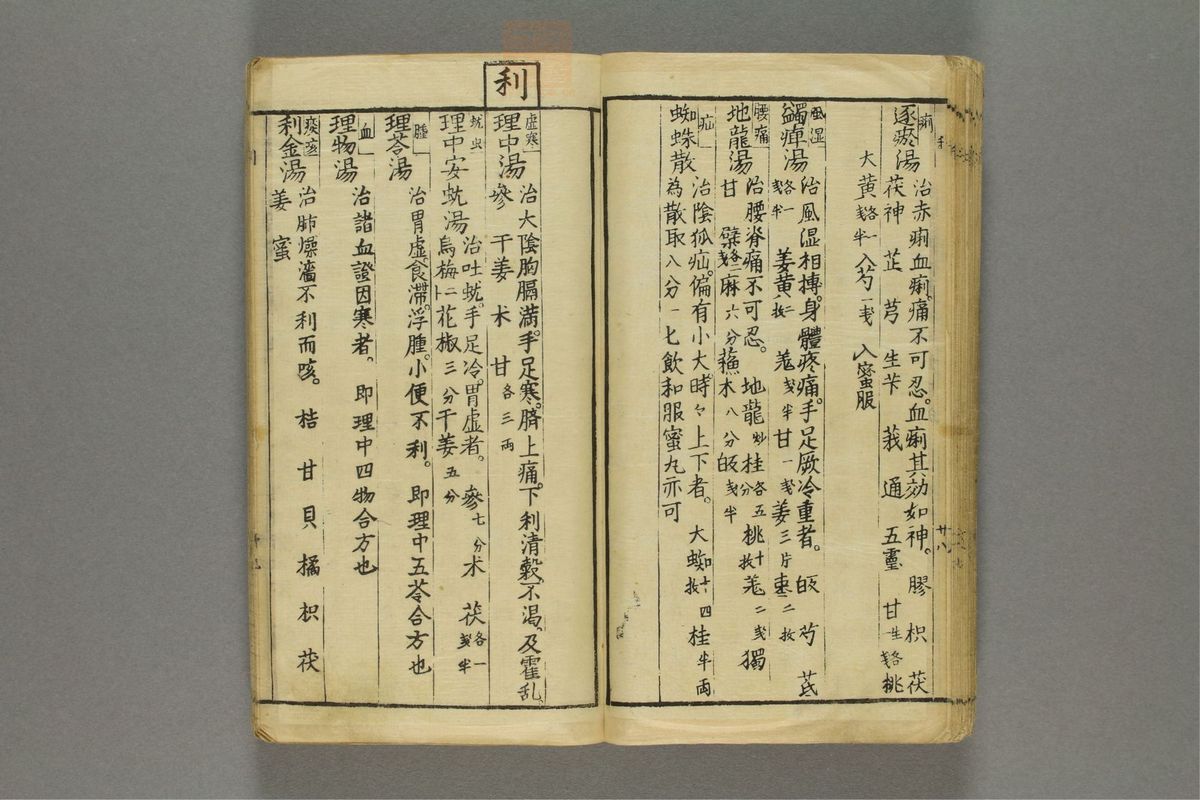 痢
逐瘀湯 治赤痢血痢。痛不可忍。血痢其効如神。 膠 枳 茯
茯神 芷 芎 生芐 莪 通 五靈 甘 生各 桃
大黄 各一戔半 入芍 一戔 入蜜服
風湿
蠲痺湯 治風湿相搏。身體疼痛。手足厥冷重者。 皈 芍 芪
各一戔半 姜黄 二枚 羗 戔半 甘 一戔 姜 三片 棗 二枚
腰痛
地龍湯 治腰脊痛不可忍。 地龍 炒 桂 各五分 桃 十枚 羗 二戔 獨
甘 檗 各二戔 麻 六分 蘓木 八分 皈 戔半
疝
蜘蛛散 治陰狐疝。偏有小大。時々上下者。 大蜘 十四枚 桂 半両
為散取八分一匕飲和服蜜丸亦可
廿八
利
虚寒
理中湯 治大陰胸膈満。手足寒。臍上痛。下利清穀。不渇。及霍乱
參 干姜 朮 甘 各三両
蚘虫
理中安蚘湯 治吐蚘。手足冷。胃虚者。 參 七分 朮 茯 各一戔半
烏梅 二 花椒 三分 干姜 五分
腫
理苓湯 治胃虚食滞。浮腫。小便不利。 即理中五苓合方也
血
理物湯 治諸血證因寒者。 即理中四物合方也
痰咳
利金湯 治肺燥濇不利而咳。 桔 甘 貝 橘 枳 茯
姜 蜜